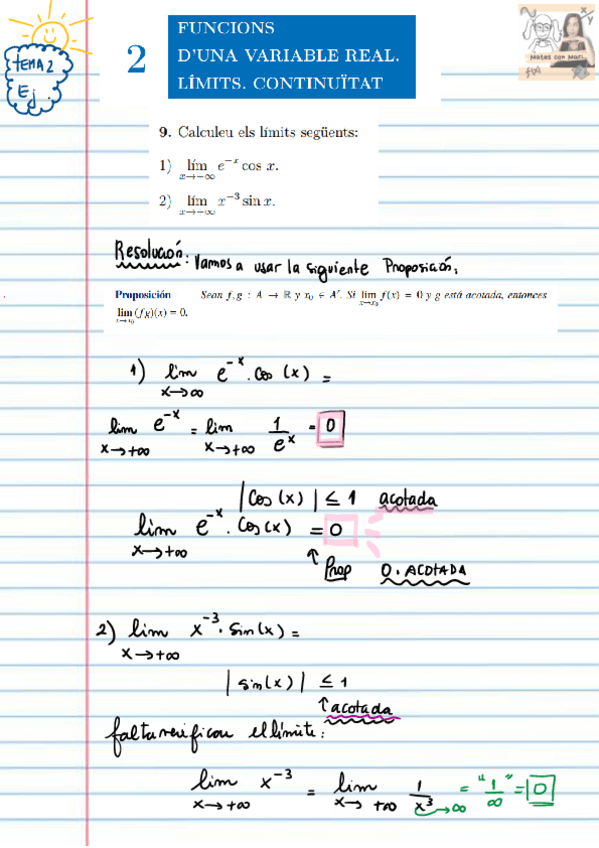 TEMA 2
Ej.
2
FUNCIONS
D'UNA VARIABLE REAL.
LÍMITS. CONTINUÏTAT
Mates con Mari
9. Calculeu els límits següents:
1) lím x→+∞ e^{-x} cos x.
2) lím x→+∞ x^{-3} sin x.
Resolución: Vamos a usar la siguiente Proposición:
Proposición Sean f, g : A → ℝ y x₀ ∈ A'. Si lim x→x₀ f(x) = 0 y g está acotada, entonces
lim x→x₀ (fg)(x) = 0.
1) lim x→∞ e^{-x} · cos(x) =
lim x→+∞ e^{-x} = lim x→+∞ 1/e^x = 0
|cos(x)| ≤ 1 acotada
lim x→+∞ e^{-x} · cos(x) = 0
↑ Prop 0 · ACOTADA
2) lim x→+∞ x^{-3} · sin(x) =
|sin(x)| ≤ 1
↑ acotada
falta verificar el límite:
lim x→+∞ x^{-3} = lim x→+∞ 1/x^3 →∞ = "1/∞" = 0